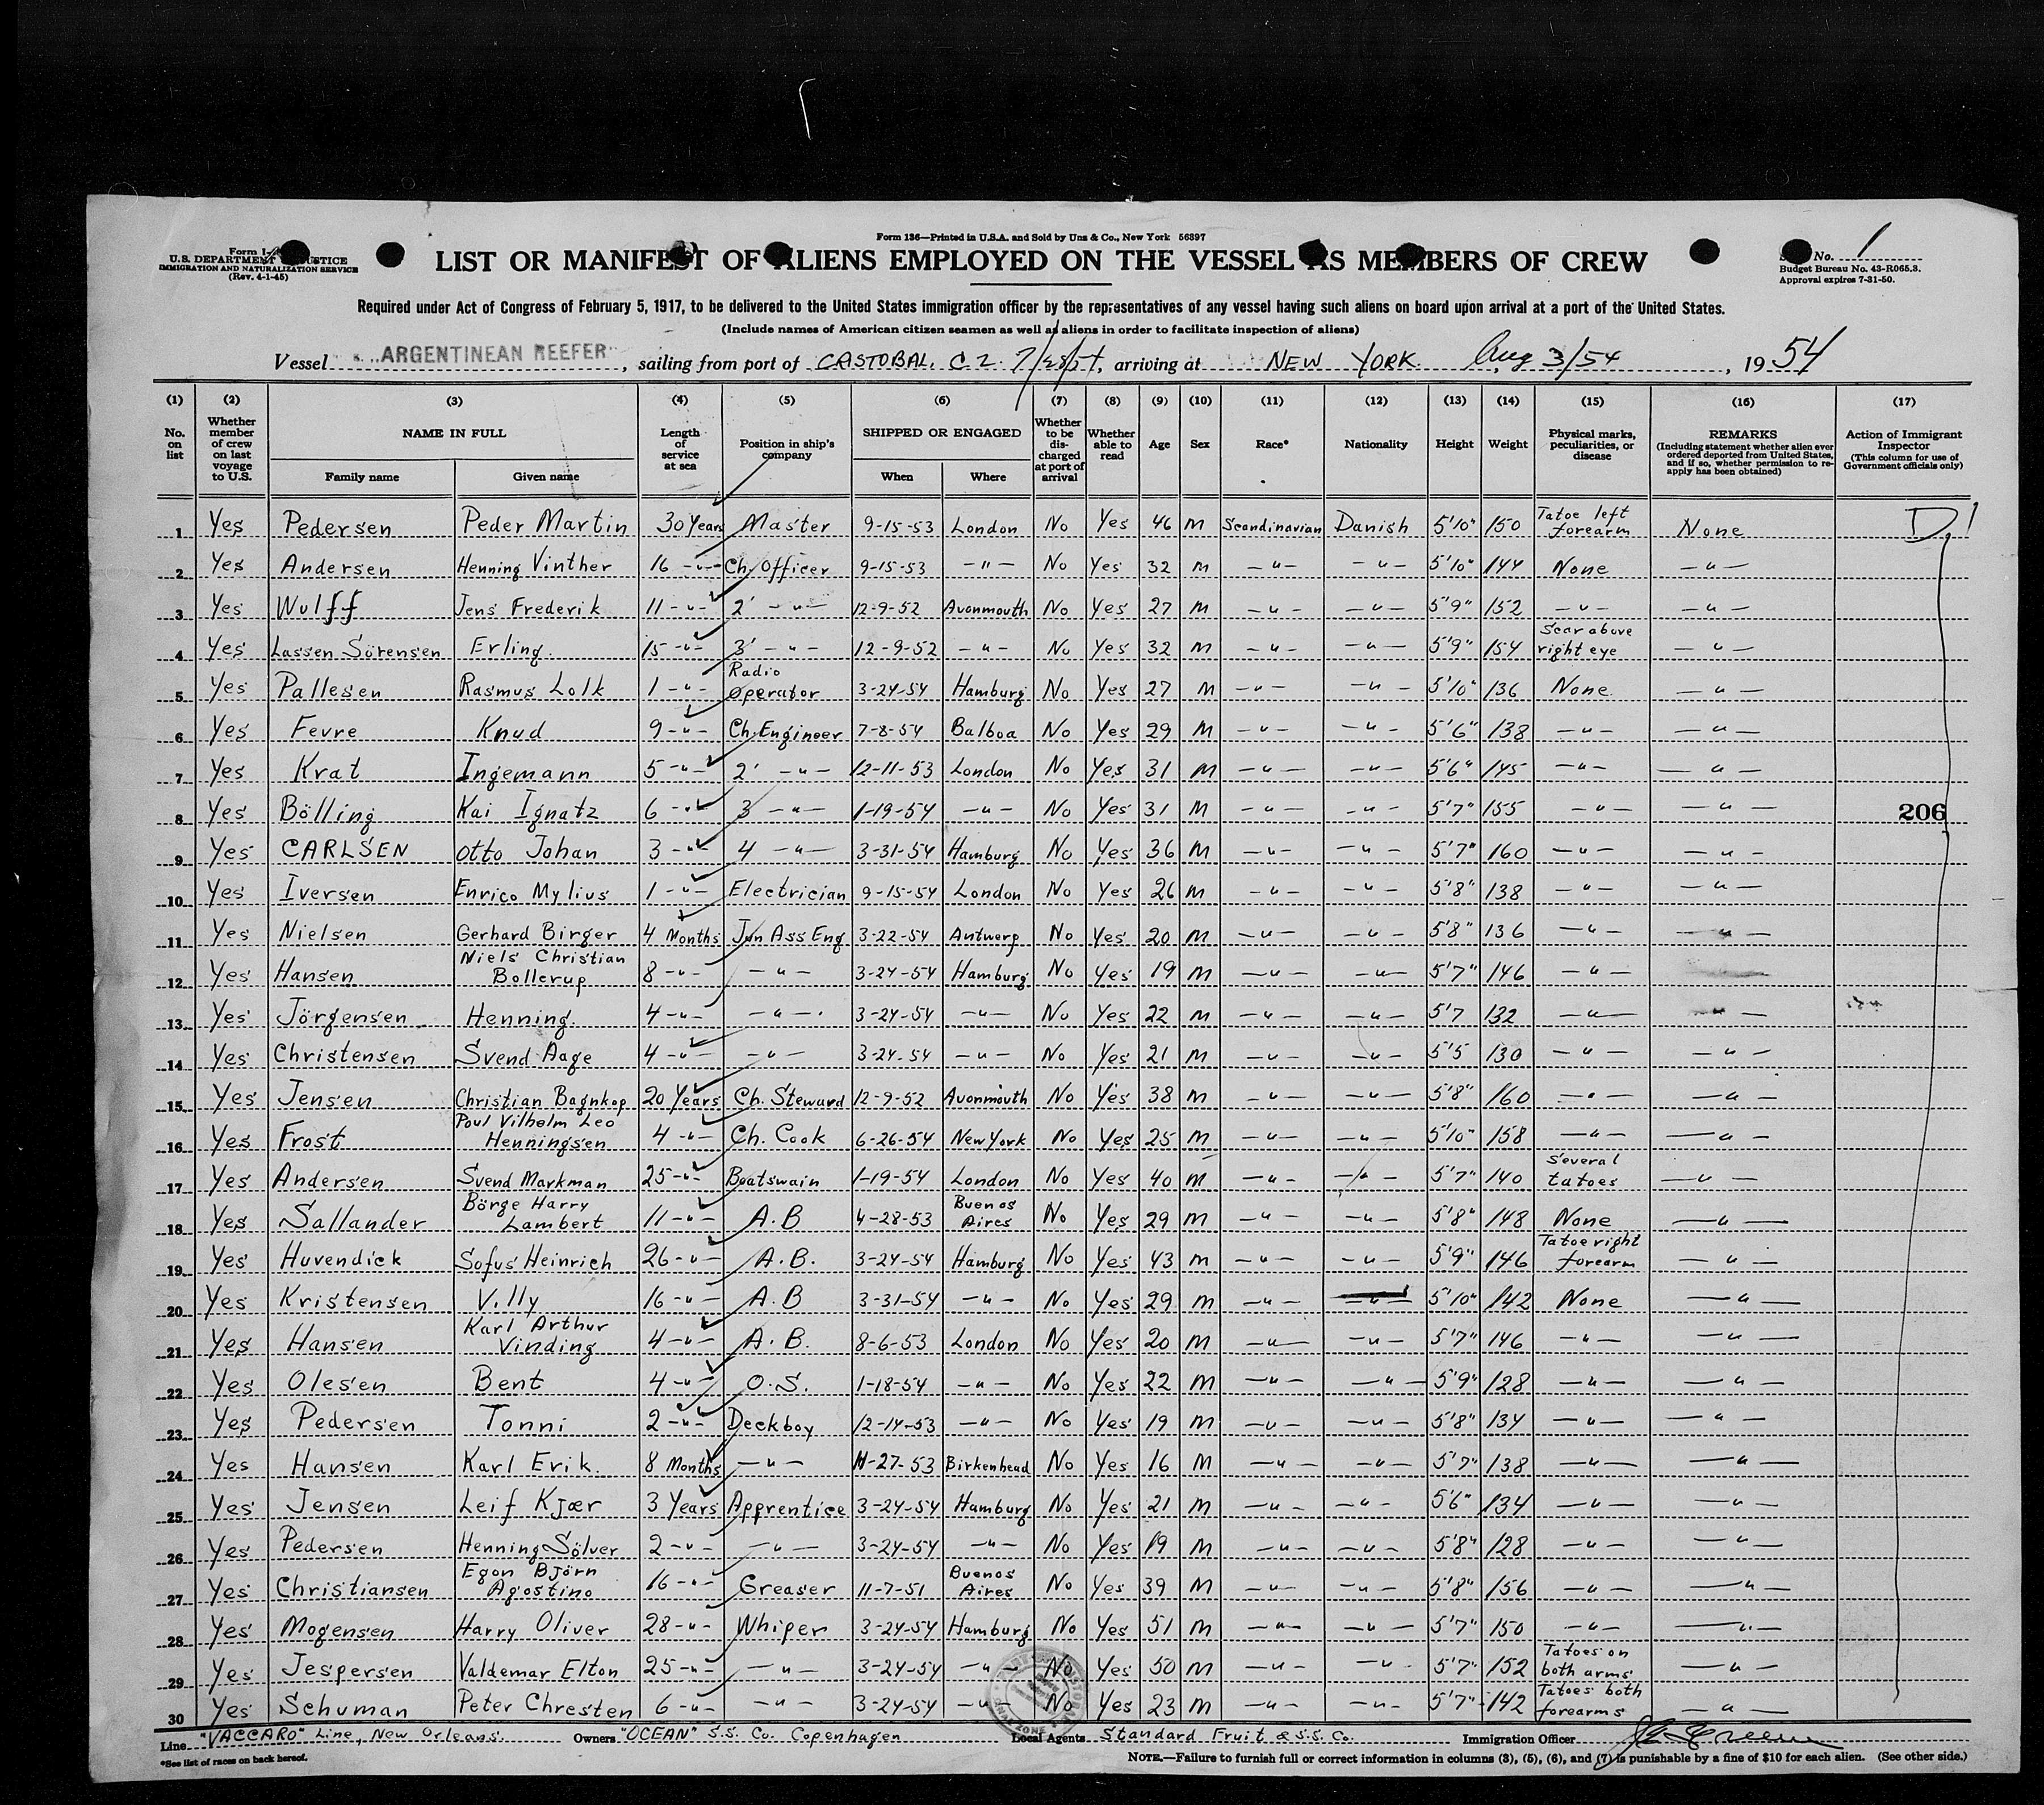 Form 136—Printed in U.S.A. and Sold by Unz & Co., New York 56397
Form I-
U.S. DEPARTMENT JUSTICE
IMMIGRATION AND NATURALIZATION SERVICE
(Rev. 4-1-45)
LIST OR MANIFEST OF ALIENS EMPLOYED ON THE VESSEL AS MEMBERS OF CREW
No. 1
Budget Bureau No. 43-R065.3.
Approval expires 7-31-50.
Required under Act of Congress of February 5, 1917, to be delivered to the United States immigration officer by the representatives of any vessel having such aliens on board upon arrival at a port of the United States.
(Include names of American citizen seamen as well as aliens in order to facilitate inspection of aliens)
Vessel ARGENTINEAN REEFER, sailing from port of CASTOBAL, C Z. 7/28/54, arriving at NEW YORK. Aug 3/54, 1954
(1) (2) (3) (4) (5) (6) (7) (8) (9) (10) (11) (12) (13) (14) (15) (16) (17)
No. on list
Whether member of crew on last voyage to U.S.
NAME IN FULL
Family name Given name
Length of service at sea
Position in ship's company
SHIPPED OR ENGAGED
When Where
Whether to be discharged at port of arrival
Whether able to read
Age
Sex
Race*
Nationality
Height
Weight
Physical marks, peculiarities, or disease
REMARKS
(Including statement whether alien ever ordered deported from United States, and if so, whether permission to reapply has been obtained)
Action of Immigrant Inspector
(This column for use of Government officials only)
1 Yes Pedersen Peder Martin 30 Years Master 9-15-53 London No Yes 46 M Scandinavian Danish 5'10" 150 Tatoe left forearm None D
2 Yes Andersen Henning Vinther 16 -"- Ch. Officer 9-15-53 -"- No Yes 32 M -"- -"- 5'10" 144 None -"-
3 Yes Wulff Jens Frederik 11 -"- 2' -"- 12-9-52 Avonmouth No Yes 27 M -"- -"- 5'9" 152 -"- -"-
4 Yes Lassen Sörensen Erling. 15 -"- 3' -"- 12-9-52 -"- No Yes 32 M -"- -"- 5'9" 154 Scar above right eye -"-
5 Yes Pallesen Rasmus Lolk 1 -"- Radio Operator 3-24-54 Hamburg No Yes 27 M -"- -"- 5'10" 136 None -"-
6 Yes Fevre Knud 9 -"- Ch. Engineer 7-8-54 Balboa No Yes 29 M -"- -"- 5'6" 138 -"- -"-
7 Yes Krat Ingemann 5 -"- 2' -"- 12-11-53 London No Yes 31 M -"- -"- 5'6" 145 -"- -"-
8 Yes Bölling Kai Ignatz 6 -"- 3 -"- 1-19-54 -"- No Yes 31 M -"- -"- 5'7" 155 -"- -"- 206
9 Yes CARLSEN Otto Johan 3 -"- 4 -"- 3-31-54 Hamburg No Yes 36 M -"- -"- 5'7" 160 -"- -"-
10 Yes Iversen Enrico Mylius 1 -"- Electrician 9-15-54 London No Yes 26 M -"- -"- 5'8" 138 -"- -"-
11 Yes Nielsen Gerhard Birger 4 Months Jun Ass Eng 3-22-54 Antwerp No Yes 20 M -"- -"- 5'8" 136 -"- -"-
12 Yes Hansen Niels Christian Bollerup 8 -"- -"- 3-24-54 Hamburg No Yes 19 M -"- -"- 5'7" 146 -"-
13 Yes Jörgensen Henning. 4 -"- -"- 3-24-54 -"- No Yes 22 M -"- -"- 5'7 132 -"- -"-
14 Yes Christensen Svend Aage 4 -"- -"- 3-24-54 -"- No Yes 21 M -"- -"- 5'5 130 -"- -"-
15 Yes Jensen Christian Bagnkop 20 Years Ch. Steward 12-9-52 Avonmouth No Yes 38 M -"- -"- 5'8" 160 -"- -"-
16 Yes Frost Poul Vilhelm Leo Henningsen 4 -"- Ch. Cook 6-26-54 New York No Yes 25 M -"- -"- 5'10" 158 -"- -"-
17 Yes Andersen Svend Markman 25 -"- Boatswain 1-19-54 London No Yes 40 M -"- -"- 5'7" 140 Several tatoes -"-
18 Yes Sallander Börge Harry Lambert 11 -"- A.B 4-28-53 Buenos Aires No Yes 29 M -"- -"- 5'8" 148 None -"-
19 Yes Huvendick Sofus Heinrich 26 -"- A.B. 3-24-54 Hamburg No Yes 43 M -"- -"- 5'9" 146 Tatoe right forearm -"-
20 Yes Kristensen Villy 16 -"- A.B 3-31-54 -"- No Yes 29 M -"- -"- 5'10" 142 None -"-
21 Yes Hansen Karl Arthur Vinding 4 -"- A.B. 8-6-53 London No Yes 20 M -"- -"- 5'7" 146 -"- -"-
22 Yes Olesen Bent 4 -"- O.S. 1-18-54 -"- No Yes 22 M -"- -"- 5'9" 128 -"- -"-
23 Yes Pedersen Tonni 2 -"- Deckboy 12-14-53 -"- No Yes 19 M -"- -"- 5'8" 134 -"- -"-
24 Yes Hansen Karl Erik. 8 Months -"- 11-27-53 Birkenhead No Yes 16 M -"- -"- 5'7" 138 -"- -"-
25 Yes Jensen Leif Kjær 3 Years Apprentice 3-24-54 Hamburg No Yes 21 M -"- -"- 5'6" 134 -"- -"-
26 Yes Pedersen Henning Sölver 2 -"- -"- 3-24-54 -"- No Yes 19 M -"- -"- 5'8" 128 -"- -"-
27 Yes Christiansen Egon Björn Agostino 16 -"- Greaser 11-7-51 Buenos Aires No Yes 39 M -"- -"- 5'8" 156 -"- -"-
28 Yes Mogensen Harry Oliver 28 -"- Whiper 3-24-54 Hamburg No Yes 51 M -"- -"- 5'7" 150 -"- -"-
29 Yes Jespersen Valdemar Elton 25 -"- -"- 3-24-54 -"- No Yes 50 M -"- -"- 5'7" 152 Tatoes on both arms -"-
30 Yes Schuman Peter Chresten 6 -"- -"- 3-24-54 -"- No Yes 23 M -"- -"- 5'7" 142 Tatoes both forearms -"-
Line "VACCARO" Line, New Orleans. Owners "OCEAN" S.S. Co. Copenhagen Local Agents Standard Fruit & S.S. Co. Immigration Officer
*See list of races on back hereof.
NOTE.—Failure to furnish full or correct information in columns (3), (5), (6), and (7) is punishable by a fine of $10 for each alien. (See other side.)